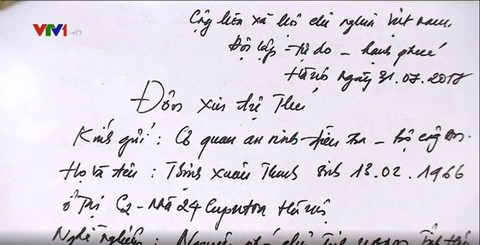 VTV1
Cộng hòa xã hội chủ nghĩa Việt nam
Độc lập - tự do - hạnh phúc
Hà Nội ngày 31.07.2017
Đơn xin tự thú
Kính gửi: Cơ quan an ninh điều tra - Bộ công an.
Họ và tên: Trịnh Xuân Thanh sinh 13.02.1966
ở Tại C2 - Nhà 24 Hà Nội
Nghề nghiệp: Nguyên phó chủ tịch